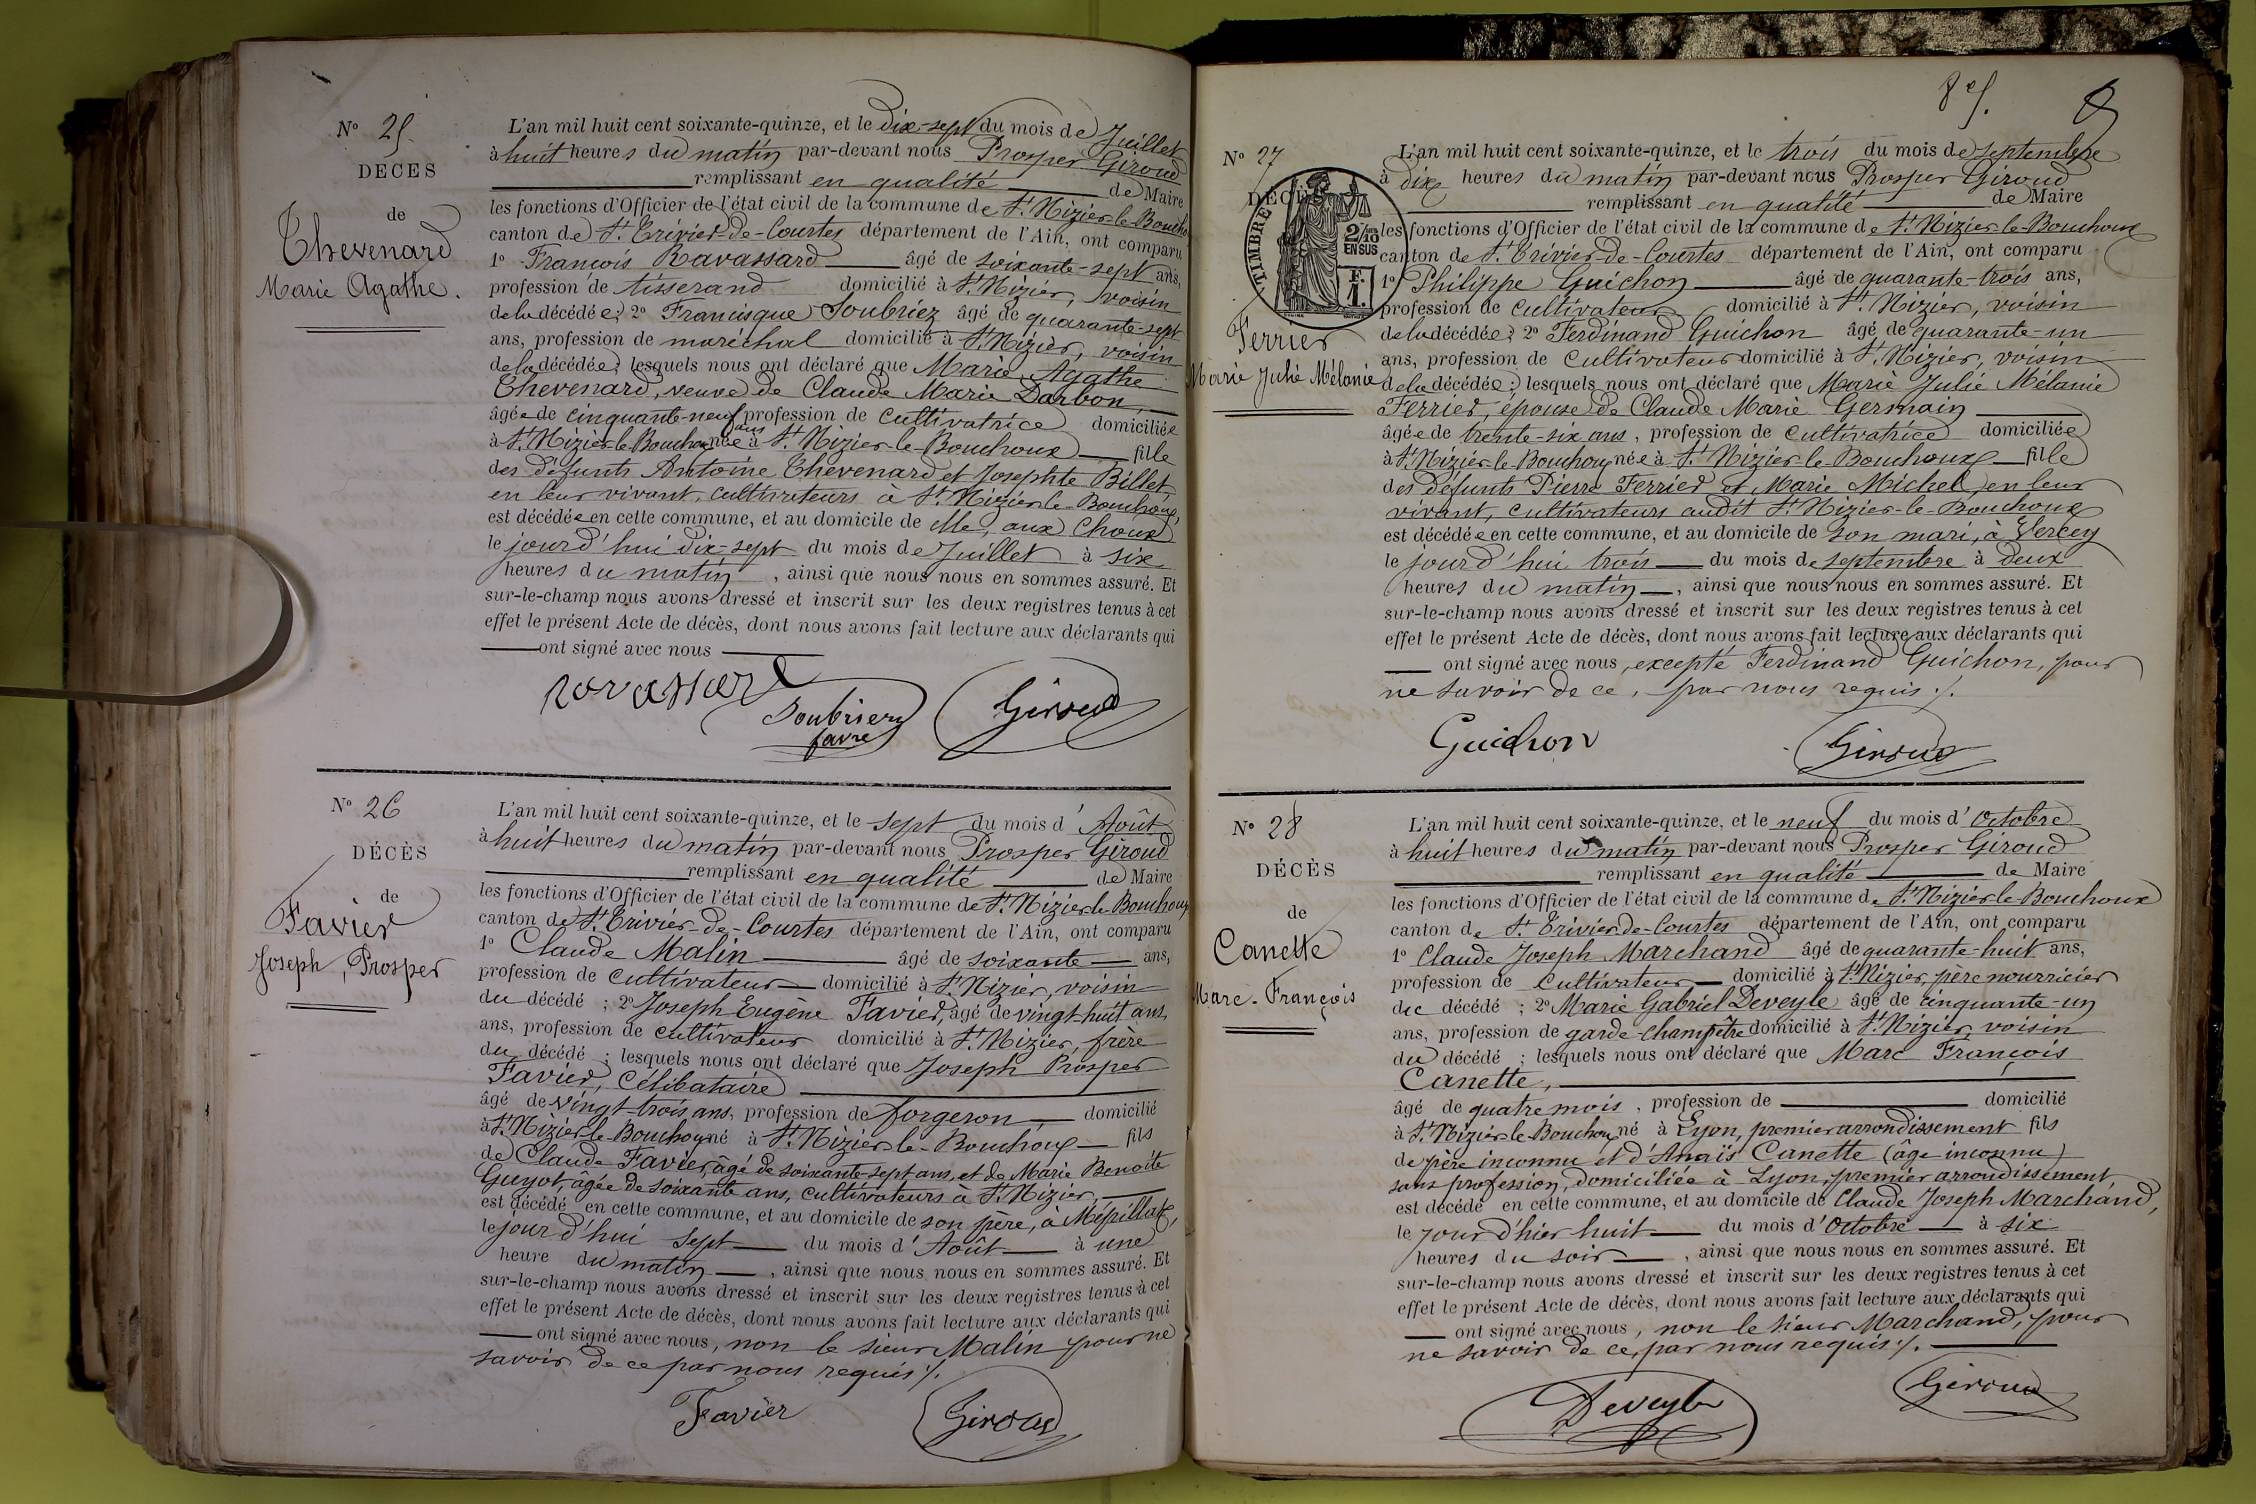 N° 25
DÉCÈS
de
Thevenard
Marie Agathe.
L'an mil huit cent soixante-quinze, et le dix-sept du mois de Juillet
à huit heures du matin par-devant nous Prosper Giroud
remplissant en qualité de Maire
les fonctions d'Officier de l'état civil de la commune de St. Nizier-le-Boucho
canton de St. Trivier-de-Courtes département de l'Ain, ont comparu
1° François Ravassard âgé de soixante-sept ans,
profession de tisserand domicilié à St. Nizier, voisin
de la décédée; 2° Francisque Soubriez âgé de quarante-sept
ans, profession de maréchal domicilié à St. Nizier, voisin
de la décédée; lesquels nous ont déclaré que Marie Agathe
Thevenard, veuve de Claude Marie Darbon,
âgée de cinquante-neuf ans profession de cultivatrice domiciliée
à St. Nizier-le-Bouchoux née à St. Nizier-le-Bouchoux fille
des défunts Antoine Thevenard et Josephte Billet,
en leur vivant, cultivateurs à St. Nizier-le-Bouchoux,
est décédée en cette commune, et au domicile de elle, aux Choux
le jourd'hui dix-sept du mois de Juillet à six
heures du matin, ainsi que nous nous en sommes assuré. Et
sur-le-champ nous avons dressé et inscrit sur les deux registres tenus à cet
effet le présent Acte de décès, dont nous avons fait lecture aux déclarants qui
ont signé avec nous
ravassard
Soubriery
favre
Giroud
N° 26
DÉCÈS
de
Favier
Joseph, Prosper
L'an mil huit cent soixante-quinze, et le sept du mois d'Août
à huit heures du matin par-devant nous Prosper Giroud
remplissant en qualité de Maire
les fonctions d'Officier de l'état civil de la commune de St. Nizier-le-Bouchoux
canton de St. Trivier-de-Courtes département de l'Ain, ont comparu
1° Claude Malin âgé de soixante ans,
profession de cultivateur domicilié à St. Nizier, voisin
du décédé; 2° Joseph Eugène Favier, âgé de vingt-huit ans,
ans, profession de cultivateur domicilié à St. Nizier, frère
du décédé; lesquels nous ont déclaré que Joseph Prosper
Favier, célibataire
âgé de vingt-trois ans, profession de forgeron, domicilié
à St. Nizier-le-Bouchoux né à St. Nizier-le-Bouchoux fils
de Claude Favier, âgé de soixante-sept ans, et de Marie Benoite
Guyot, âgée de soixante ans, cultivateurs à St. Nizier,
est décédé en cette commune, et au domicile de son père, à Mépillat,
le jourd'hui sept du mois d'Août à une
heure du matin, ainsi que nous nous en sommes assuré. Et
sur-le-champ nous avons dressé et inscrit sur les deux registres tenus à cet
effet le présent Acte de décès, dont nous avons fait lecture aux déclarants qui
ont signé avec nous, non le sieur Malin pour ne
savoir de ce par nous requis ./.
Favier
Giroud
8 ef. 8
N° 27
DÉCÈS
TIMBRE
2/10 EN SUS
F. 1.
Ferrier
Marie Julie Mélanie
L'an mil huit cent soixante-quinze, et le trois du mois de septembre
à dix heures du matin par-devant nous Prosper Giroud
remplissant en qualité de Maire
les fonctions d'Officier de l'état civil de la commune de St. Nizier-le-Bouchoux
canton de St. Trivier-de-Courtes département de l'Ain, ont comparu
1° Philippe Guichon âgé de quarante-trois ans,
profession de cultivateur domicilié à St. Nizier, voisin
de la décédée; 2° Ferdinand Guichon âgé de quarante-un
ans, profession de cultivateur domicilié à St. Nizier, voisin
de la décédée; lesquels nous ont déclaré que Marie Julie Mélanie
Ferrier, épouse de Claude Marie Germain
âgée de trente-six ans, profession de cultivatrice domiciliée
à St. Nizier-le-Bouchoux née à St. Nizier-le-Bouchoux fille
des défunts Pierre Ferrier et Marie Michel, en leur
vivant, cultivateurs audit St. Nizier-le-Bouchoux
est décédée en cette commune, et au domicile de son mari, à Vercey
le jourd'hui trois du mois de septembre à deux
heures du matin, ainsi que nous nous en sommes assuré. Et
sur-le-champ nous avons dressé et inscrit sur les deux registres tenus à cet
effet le présent Acte de décès, dont nous avons fait lecture aux déclarants qui
ont signé avec nous, excepté Ferdinand Guichon, pour
ne savoir de ce, par nous requis ./.
Guichon
Giroud
N° 28
DÉCÈS
de
Canette
Marc-François
L'an mil huit cent soixante-quinze, et le neuf du mois d'octobre
à huit heures du matin par-devant nous Prosper Giroud
remplissant en qualité de Maire
les fonctions d'Officier de l'état civil de la commune de St. Nizier-le-Bouchoux
canton de St. Trivier-de-Courtes département de l'Ain, ont comparu
1° Claude Joseph Marchand âgé de quarante-huit ans,
profession de cultivateur domicilié à St. Nizier, père nourricier
du décédé; 2° Marie Gabriel Deveyle âgé de cinquante-un
ans, profession de garde-champêtre domicilié à St. Nizier, voisin
du décédé; lesquels nous ont déclaré que Marc François
Canette,
âgé de quatre mois, profession de domicilié
à St. Nizier-le-Bouchoux né à Lyon, premier arrondissement fils
de père inconnu et d'Anaïs Canette (âge inconnu)
sans profession, domiciliée à Lyon, premier arrondissement,
est décédé en cette commune, et au domicile de Claude Joseph Marchand,
le jour d'hier huit du mois d'octobre à six
heures du soir, ainsi que nous nous en sommes assuré. Et
sur-le-champ nous avons dressé et inscrit sur les deux registres tenus à cet
effet le présent Acte de décès, dont nous avons fait lecture aux déclarants qui
ont signé avec nous, non le sieur Marchand, pour
ne savoir de ce, par nous requis ./.
Deveyle
Giroud